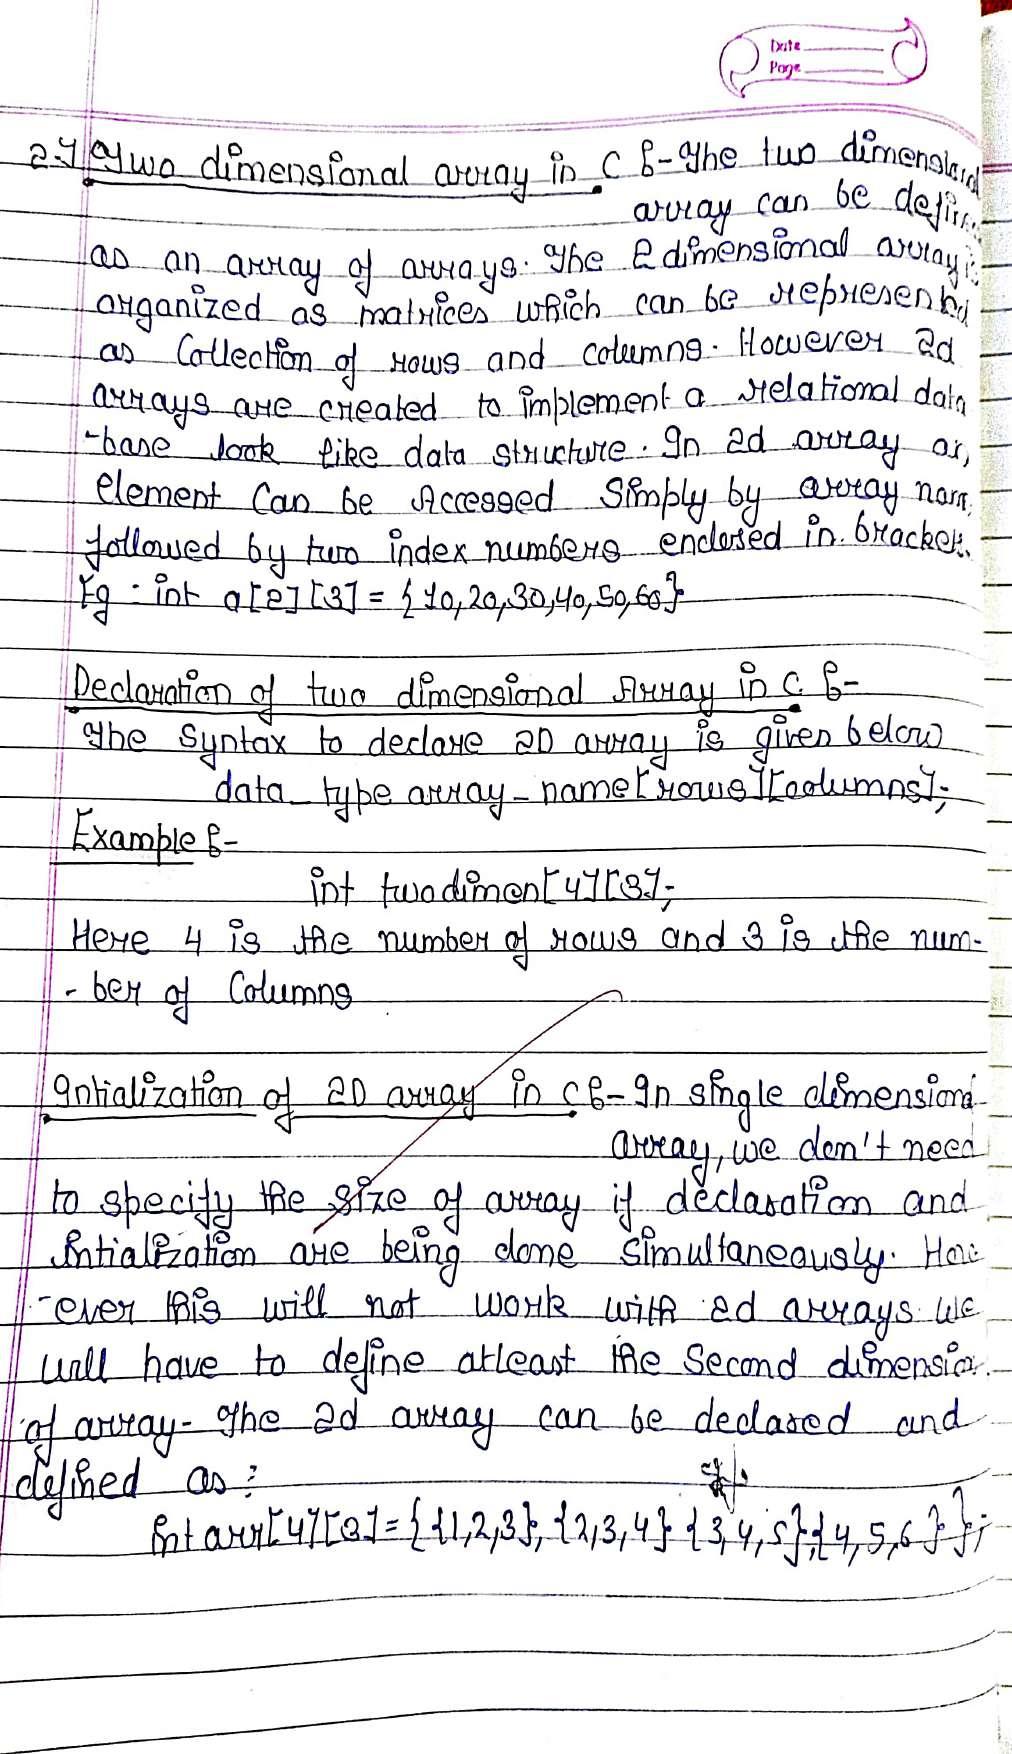 Date
Page
2.] Two dimensional array in C :- The two dimensional
array can be
as an array of arrays. The 2 dimensional array is
organized as matrices which can be represented
as Collection of rows and columns. However 2d
arrays are created to implement a relational data
-base look like data structure. In 2d array an
element Can be Accessed Simply by array name
followed by two index numbers enclosed in bracket.
Eg : int a[2][3] = {10,20,30,40,50,60}
Declaration of two dimensional Array in C :-
The Syntax to declare 2D array is given below
data_type array_name[rows][columns];
Example :-
int twodimen[4][3];
Here 4 is the number of rows and 3 is the num-
- ber of Columns
Intialization of 2D array in C :- In single dimensional
array, we don't need
to specify the size of array if declaration and
intialization are being done simultaneously. How
-ever this will not work with 2d arrays we
will have to define atleast the Second dimension
of array- The 2d array can be declared and
defined as :
int arr[4][3] = {{1,2,3}, {2,3,4} {3,4,5},{4,5,6}};